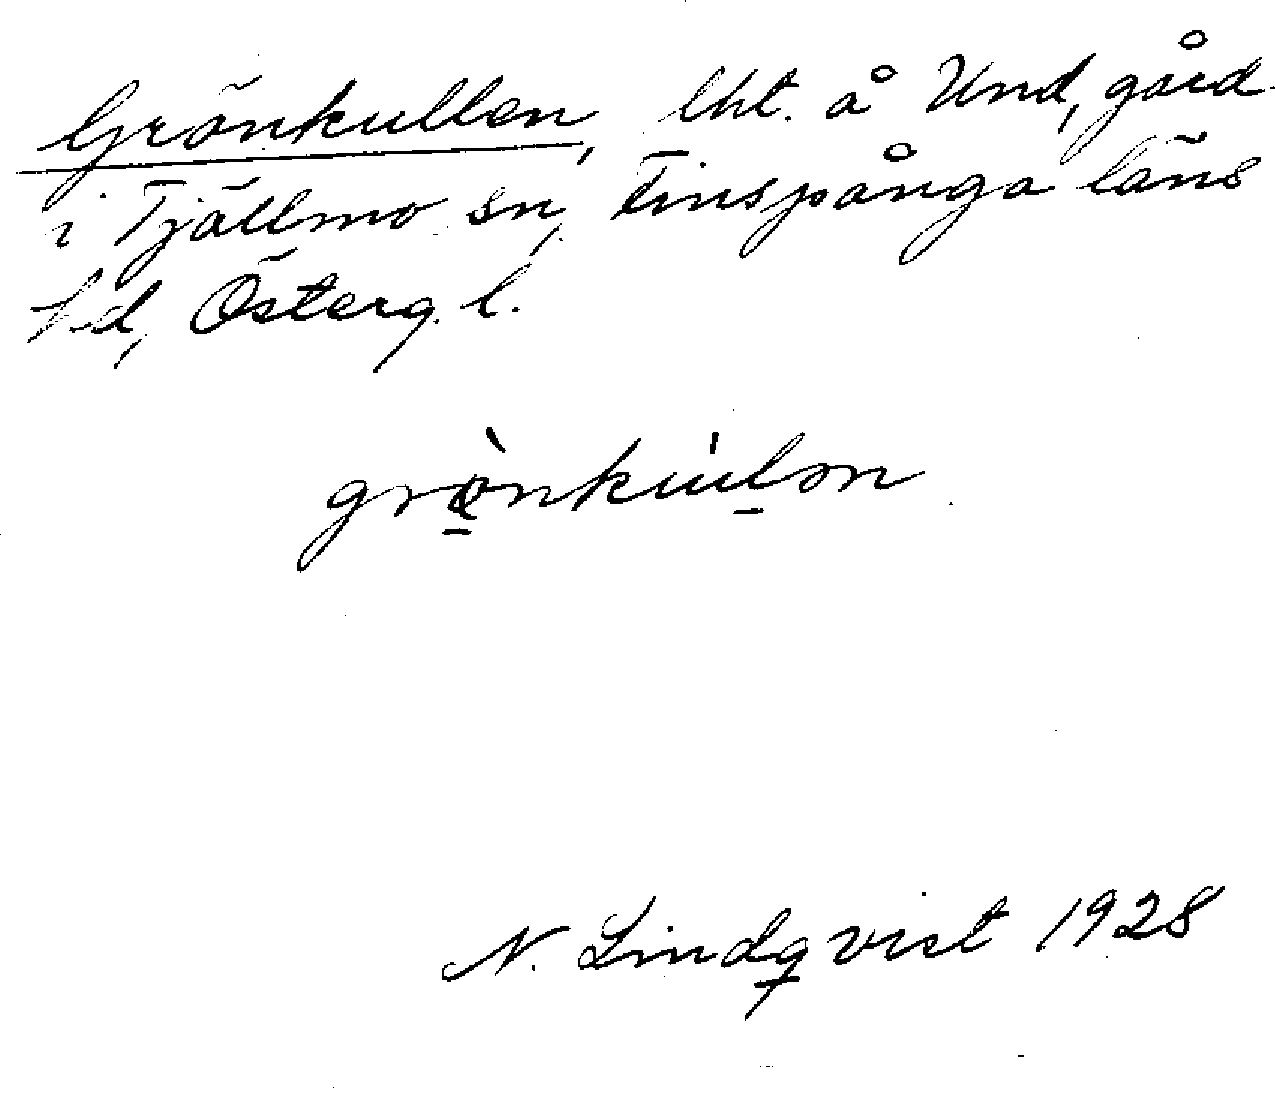 Grönkullen, lht. å Und, gård
i Tjällmo sn, Finspånga läns
hd, Österg. l.
grò̱nkuḻən
N. Lindqvist 1928